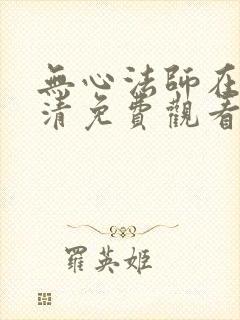 無心法師在
清免費觀看
羅英姬